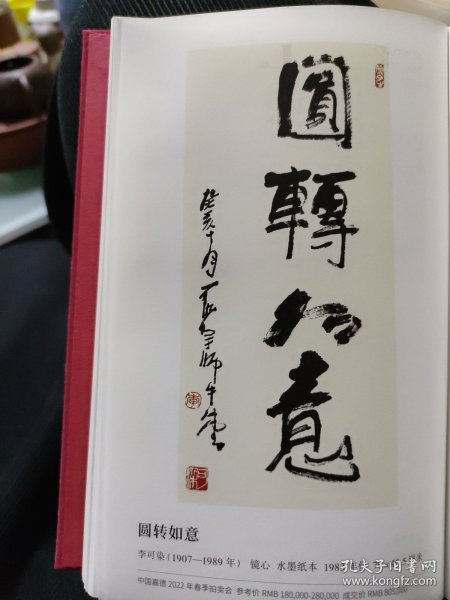 圓轉如意
癸亥十月可染于師牛堂
圆转如意
李可染（1907—1989 年） 镜心 水墨纸本 1983
中国嘉德 2022 年春季拍卖会 参考价 RMB 180,000-280,000 成交价 RMB 805,000
孔夫子旧书网